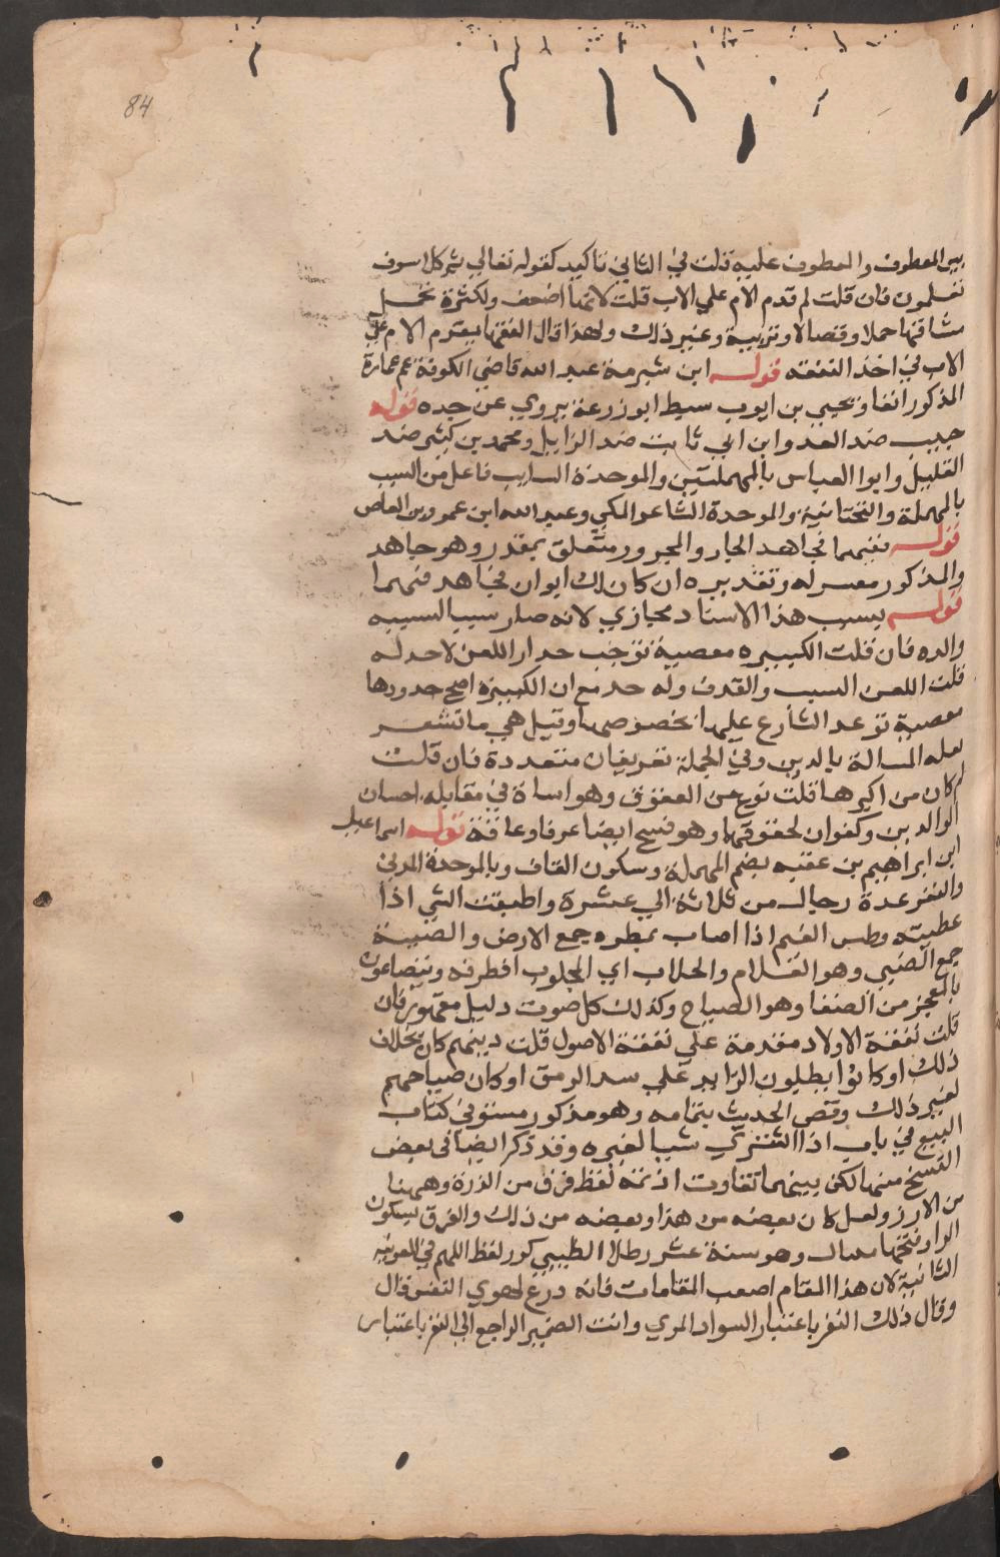 84
بين المعطوف والمعطوف عليه قلت في الثاني تاكيد كقوله تعالي ثم كلا سوف
تعلمون فان قلت لم قدم الام علي الاب قلت لانها اضعف ولكثرة تحمل
مشاقتها حملا وفصالا وتربية وغير ذلك ولهذا قال الفقها يقدم الام علي
الاب في اخذ النفقه قوله ابن شبرمة عبد الله قاضي الكوفة عم عمارة
المذكور انفا ويحيي بن ايوب سبط ابو زرعة يروي عن جده قوله
حبيب ضد العدو ابن ابي ثابت ضد الزايل ومحمد بن كثير ضد
القليل وابوا العباس بالمهملتين والموحدة السايب فاعل من السيب
بالمهملة والتحتانية والموحدة الشاعر المكي وعبد الله ابن عمرو بن العاص
قوله ففيهما فجاهد الجار والمجرور متعلق بمقدر وهو جاهد
والمذكور مفسر له وتقديره ان كان لك ابوان فجاهد فيهما
قوله يسب هذا الاسناد مجازي لانه صار سببا لسبه
والده فان قلت الكبيره معصية توجب حدا واللعن لا حد له
قلت اللعن السب والقذف وله حد مع ان الكبيرة اصح حدودها
معصية توعد الشارع عليها بخصوصها وقيل هي ما تشعر
المبالاة بالدين وفي الجملة تعريفات متعددة فان قلت
لم كان من اكبرها قلت نوع من العقوق وهو اساة في مقابله احسان
الوالدين وكفران لحقوقهما وهو قبيح ايضا عرفا وعادة قوله اسماعيل
ابن ابراهيم بن عقبه بضم المهملة وسكون القاف وبالموحدة المدني
والنفر عدة رجال من ثلاثة الي عشرة واطبقت الشي اذا
غطيته وطبس الغيم اذا اصاب بمطره جمع الارض والصبية
جمع الصبي وهو الغلام والحلاب اي المحلوب افطرته ويتضاغون
بالمعجز من الضغا وهو الصياح وكذلك كل صوت دليل مقهور فان
قلت نفقة الاولاد مقدمة علي نفقة الاصول قلت دينهم كان بخلاف
ذلك او كانوا يطلبون الزايد علي سد الرمق او كان صياحهم
لغير ذلك وقص الحديث بتمامه وهو مذكور مستوفي كتاب
البيع في باب اذا اشتري شيا لغيره وقد ذكر ايضا في بعض
النسخ منها لكن بينهما تفاوت اذ ثمه لفظ فرق من الذرة وههنا
من الارز ولعل كان بعضه من هذا وبعضه من ذلك والفرق بسكون
الرا وفتحها مكيال وهو ستة عشر رطلا الطيبي كرر لفظ اللهم في القرينه
الثانية لان هذا المقام اصعب المقامات فانه درع لهوي النفس قال
وقال ذلك النفر باعتبار السواد المري وانث الضمير الراجع الي النفر باعتبار